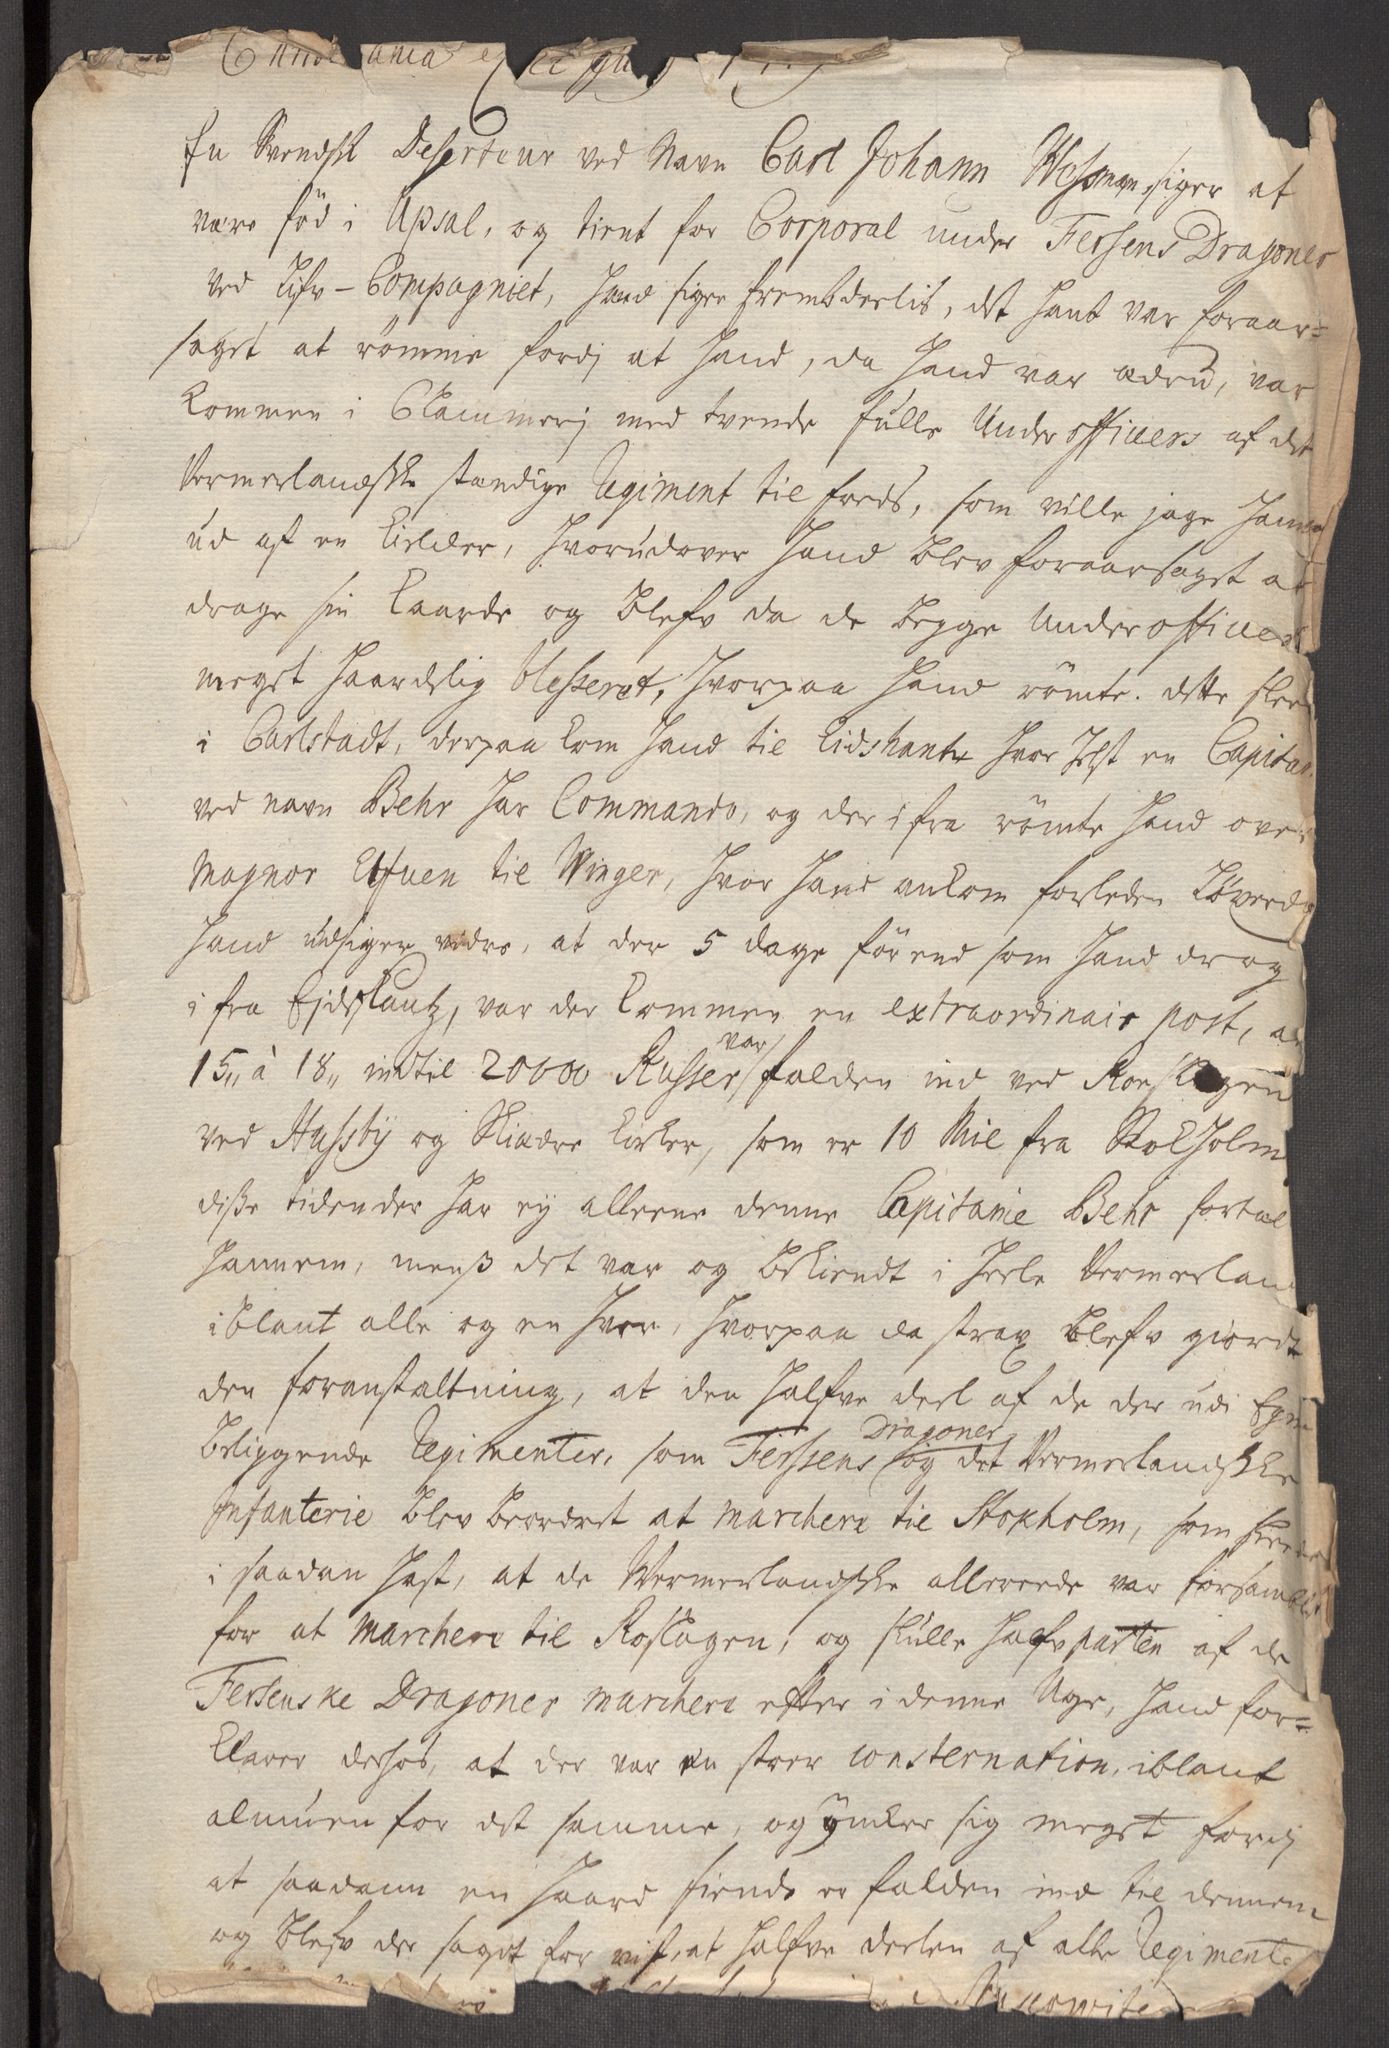 En Svendsk Deserteur ved Navn Carl Johann siger at
være föd i Upsal, og tient for Corporal under Fersens Dragoner
ved Lifv-Compagniet, Hand siger fremdeelis, det Hand var foraar=
saget at römme fordj at Hand, da Hand var ædru, var
kommen i Clammerj med tvende fulle Underofficers af det
Vermerlandske stændige Regiment til foeds, som ville jage Hannem
ud af en Kielder, hvorudover Hand blev foraarsaget at
drage sin Kaarde og blefv da de begge Underofficers
meget Haardelig blesseret, hvorpaa Hand römte. dette skee
i Carlstadt, derpaa kom Hand til Eidshante hvor Jtzt en Capitain
ved navn Behr har Commando, og der ifra römte Hand over
Magnor Elfuen til Winger, hvor Hand ankom forleden Löverda
Hand udsiger vedre, at der 5 dage för end som Hand drog
i fra Ejdskantz, var der kommen en extraordinair post, at
15„ à 18„ indtil 20000 Russer var falden ind ved Roeslagen
ved Hussbÿ og Skiædre Kirker, som er 10 Mil fra Stokholm
disse tidender har ey alleene denne Capitaine Behr fortal
Hannem, menß det var og bekiendt i heele Vermerland
iblant alle og en hver, hvorpaa da strax blefv giordt
den foranstaltning, at den halfve deel af de der udi Egnen
beliggende Regimenter, som Fersens Dragoner og det Vermerlandske
Infanterie blev beordret at marchere til Stokholm, som skeede
i saadan Hast, at de Wermerlandske allereede var forsamblet
for at marchere til Roslagen, og skulle halfvparten af de
Fersenske Dragoner marchere efter i denne Uge, Hand for=
klarer derhos, at der var en stoer consternation, iblant
almuen for det samme, og ÿnker sig meget fordj
at saadann en Haard fiende er falden ind til dennem
og blefv der saget for vist, at halfve deelen af alle Regimente